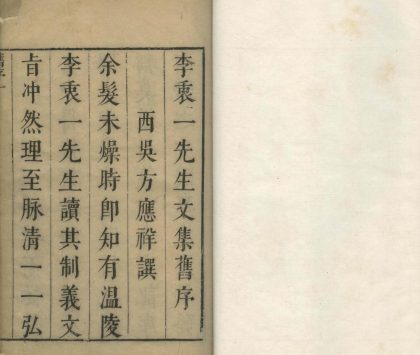 李衷一先生文集舊序
西吳方應祥譔
余髮未燥時卽知有温陵
李衷一先生讀其制義文
旨冲然理至脉清一一弘